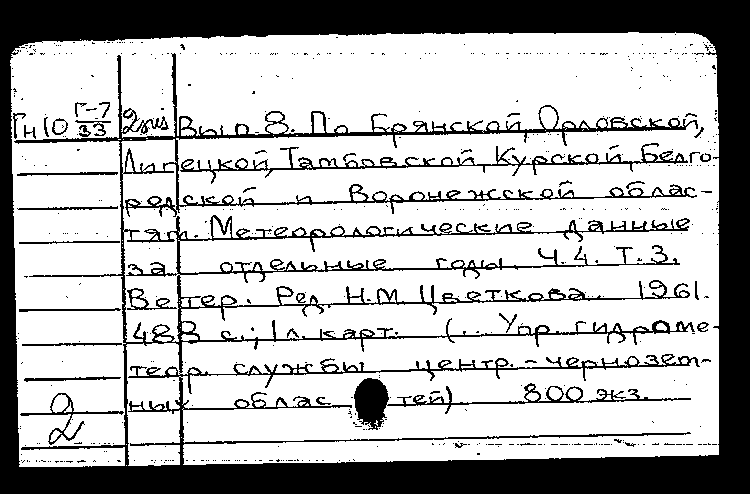 Гн10 Г-7/33 2 Вып 8. По Брянской, Орловской,
Липецкой, Тамбовской, Курской, Белго-
родской и Воронежской облас-
тям. Метеорологические данные
за отдельные годы. Ч.4. Т.3.
Ветер. Ред. Н.М. Цветкова. 1961.
488 с.; 1л. карт. (.. Упр. гидроме-
теор. службы центр.-чернозем-
ных областей) 800 экз.
2